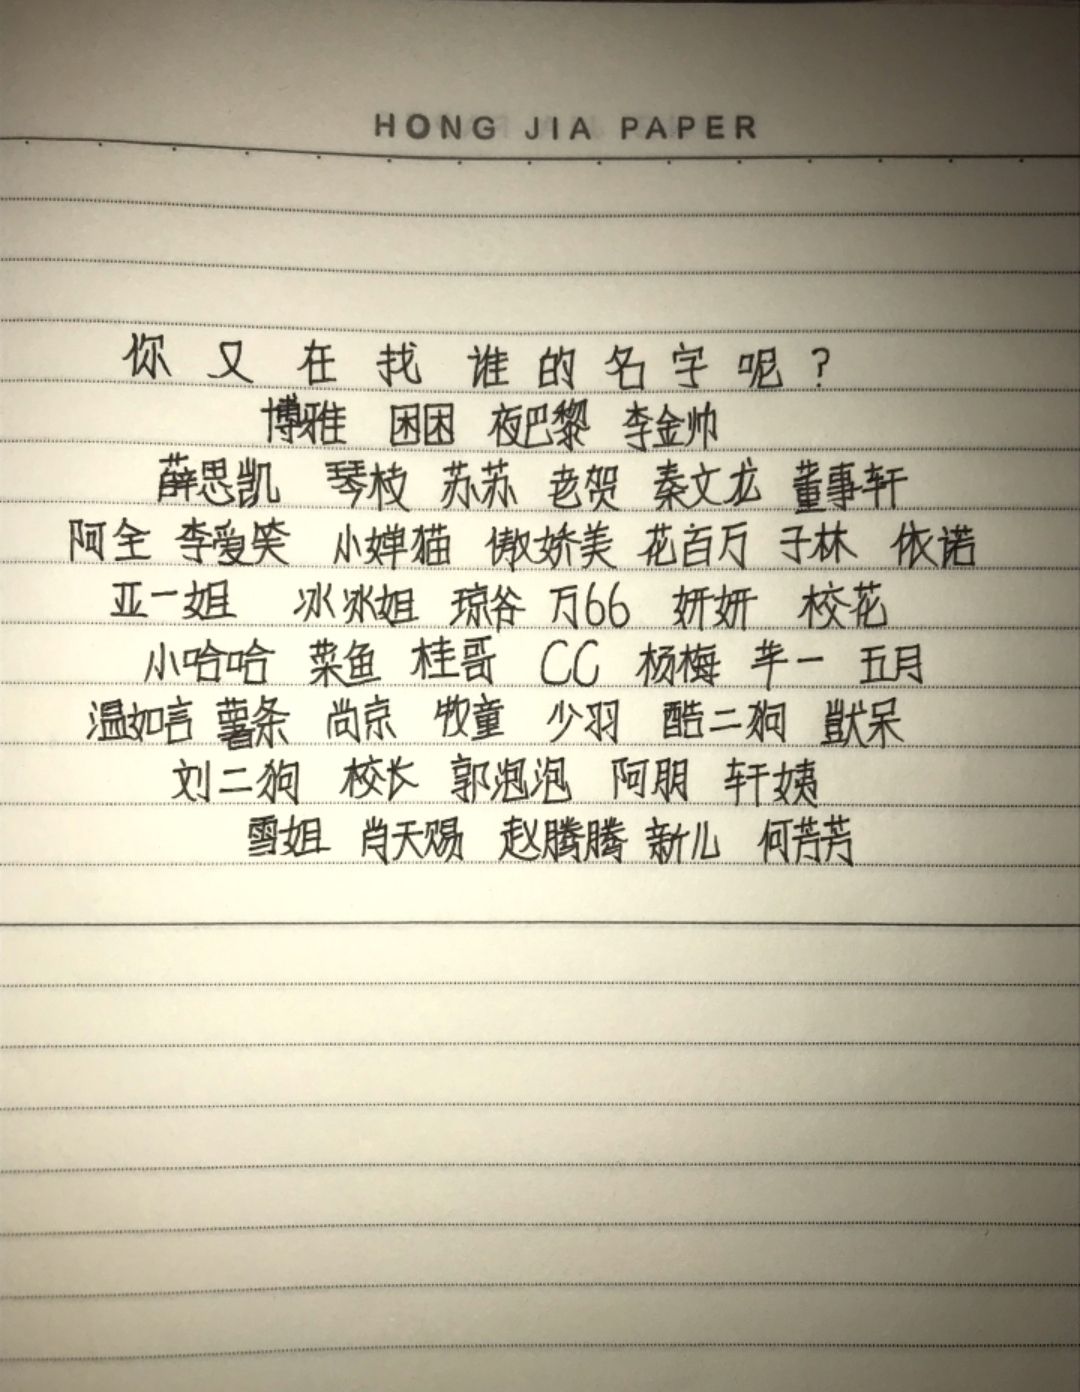 HONG JIA PAPER
你又在找谁的名字呢?
博雅 困困 夜巴黎 李金帅
薛思凯 琴枝 苏苏 老贺 秦文龙 董事轩
阿全 李爱笑 小婵猫 傲娇美 花百万 子林 依诺
亚一姐 冰冰姐 琼谷 万66 妍妍 校花
小哈哈 菜鱼 桂哥 CC 杨梅 芈一 五月
温如言 薯条 尚京 牧童 少羽 酷二狗 呆
刘二狗 校长 郭泡泡 阿朋 轩姨
雪姐 肖天赐 赵腾腾 新儿 何芳芳